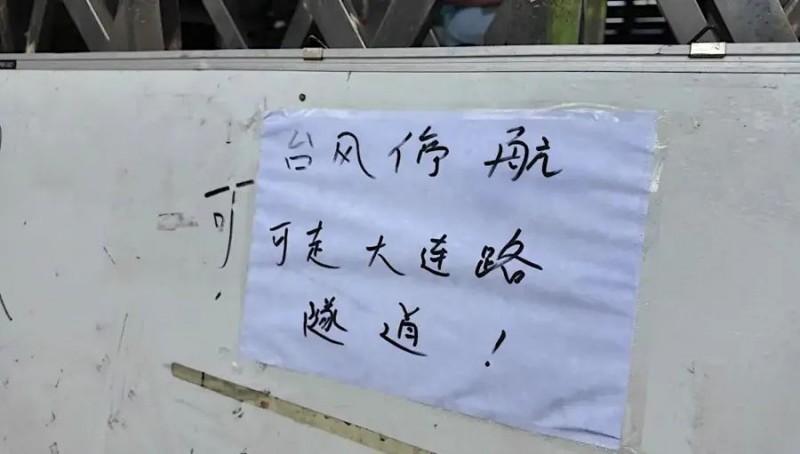 台风停航
可走大连路
隧道！
可